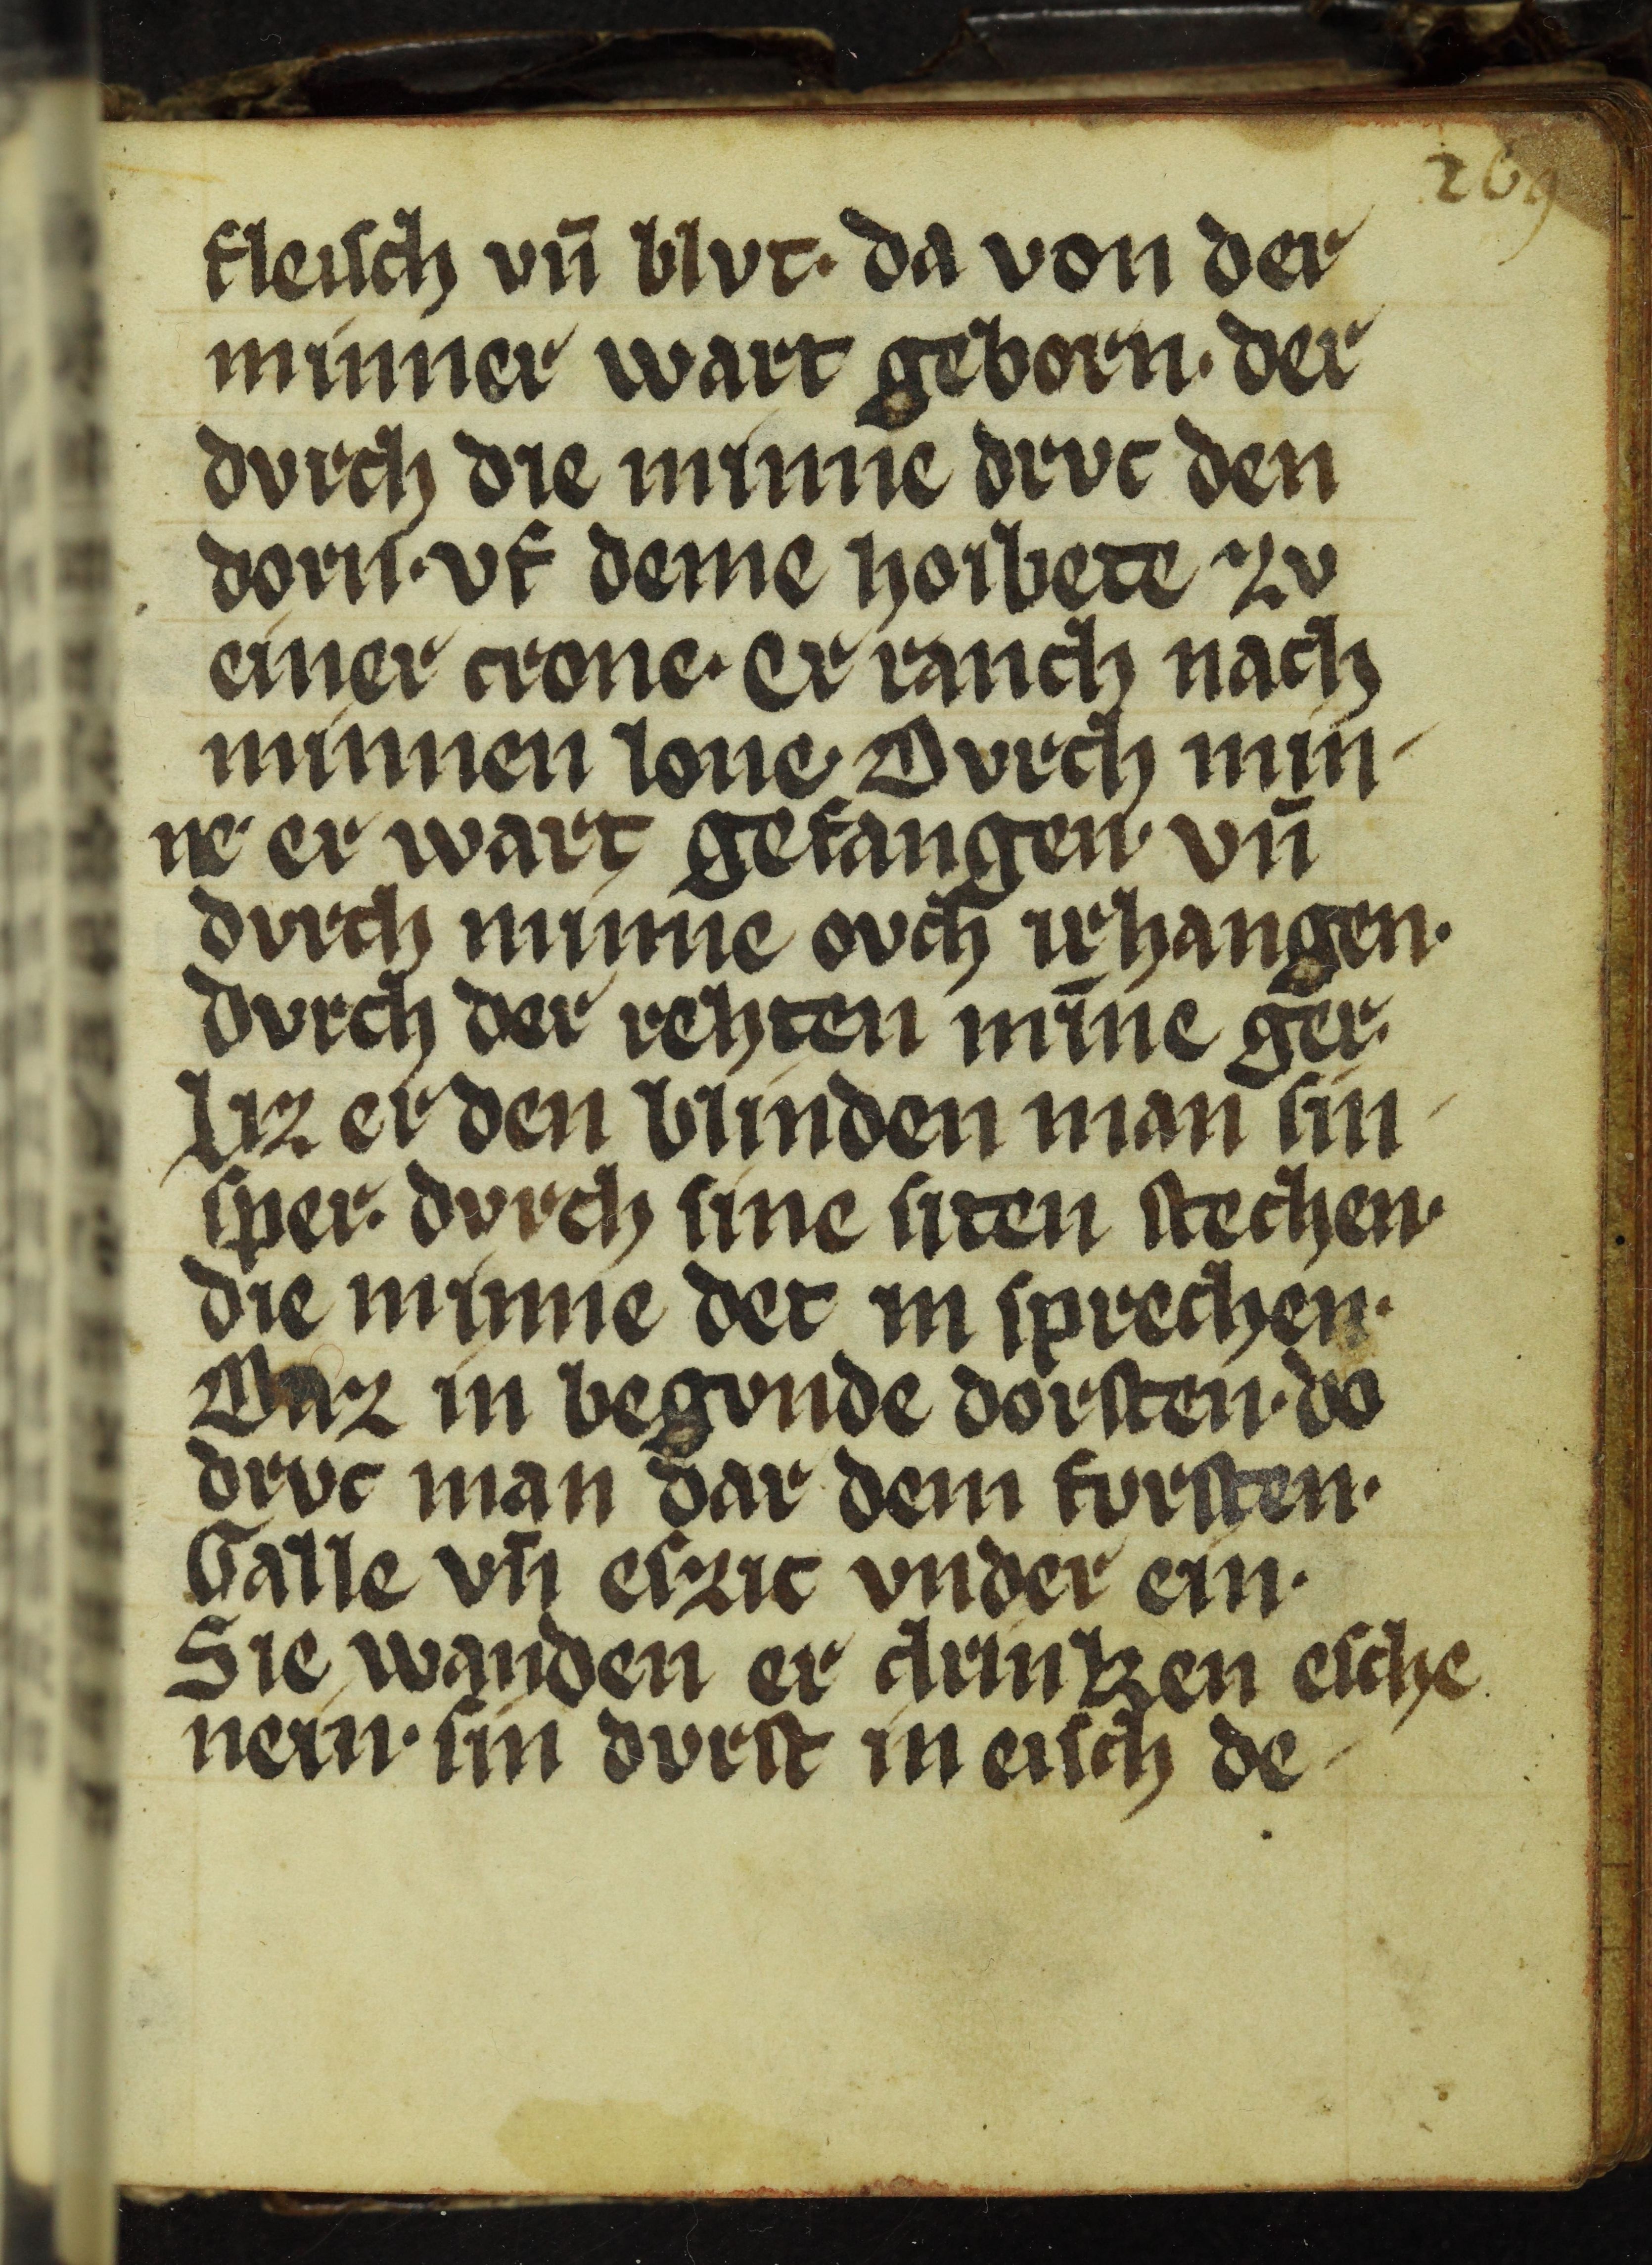 269
fleisch vn̄ blvt· da von der
minner wart geborn· der
dvrch die minne drvc den
dorn· vf deme hoibete zv
einer crone· Er ranch nach
minnen lone· Dvrch min-
ne er wart gefangen· vn̄
dvrch minne ovch irhangen·
dvrch der rehten mīne ger·
liz er den blinden man sin
sper· dvrch sine siten stechen·
die minne det in sprechen·
Daz in begvnde dorsten· do
drvc man dar dem fvrsten·
Galle vn̄ eszic vnder ein·
Sie wanden er drinkzen esche
nein· sin dvrst in eisch de-